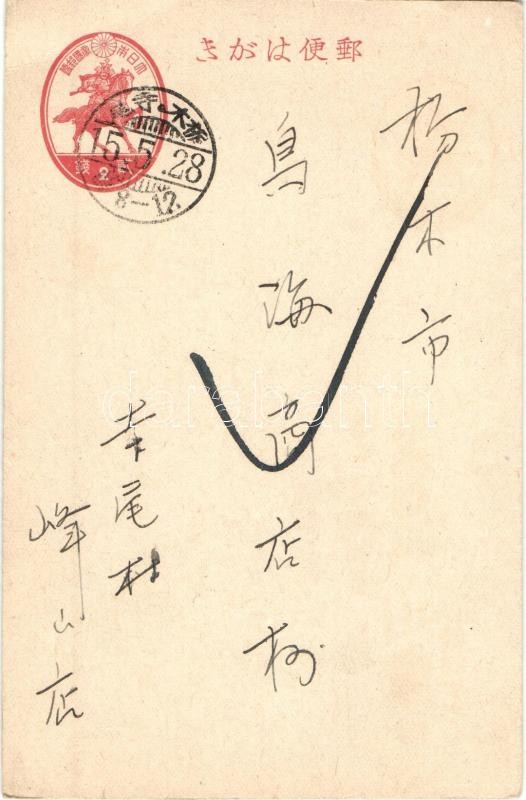 郵便はがき
大日本帝國郵便
2
栃木・寺尾
15.5.28
8-12
栃木市
鳥海商店様
寺尾村
峰山店
darabanth